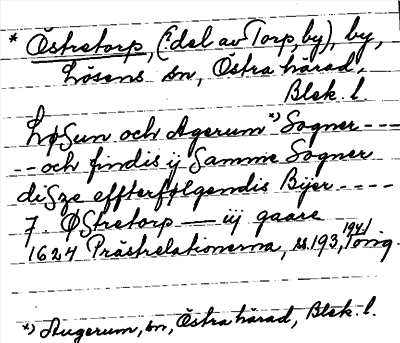 * Östretorp, (? del av Torp, by), by,
Lösens sn, Östra härad,
Blek. l.
LøSun och Agerum *) Sogner ---
-- och findis ij Samme Sogner
diSze effterfølgendis Bÿer ----
7. ØStretorp — iij gaare
1624 Prästrelationerna, s. 193, orig.
*) Augerum, sn, Östra härad, Blek. l.